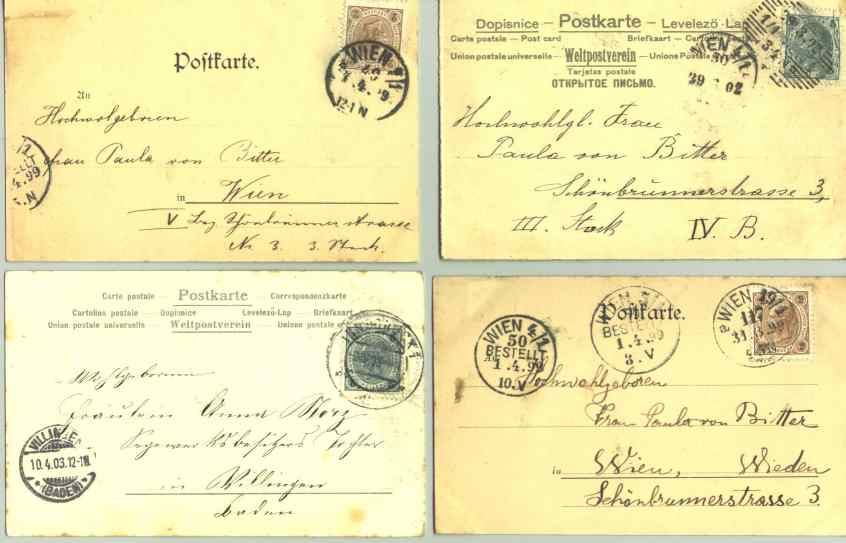 Postkarte.
An
Hochwolgeboren
Frau Paula von Bitter
in Wien
V Bez. Schönbrunnerstrasse
Nr. 3. 3. Stock.
WIEN 4/1
40
12-1N
4.99
Dopisnice – Postkarte – Levelező-Lap
Carte postale – Post card Briefkaart –
Union postale universelle – Weltpostverein – Unione Postale
Tarjetas postale
ОТКРЫТОЕ ПИСЬМО.
WIEN 4/1
50
02
Hochwohlgb. Frau
Paula von Bitter
Schönbrunnerstrasse 3,
III. Stock IV. B.
Carte postale – Postkarte – Correspondenzkarte
Cartolina postale – Dopisnice Levelező-Lap – Briefkaart
Union postale universelle Weltpostverein – Unione postale
Fräulein Anna
Sägewerksbesitzers Tochter
in Villingen
Baden
VILLINGEN
10.4.03.12-1N.
* (BADEN) *
Postkarte.
WIEN 4/1
50
BESTELLT
1.4.99
10.V
WIEN
BESTELLT
1.4.99
8.V
WIEN 19/1
117
Hochwohlgeboren
Frau Paula von Bitter
in Wien, Wieden
Schönbrunnerstrasse 3.